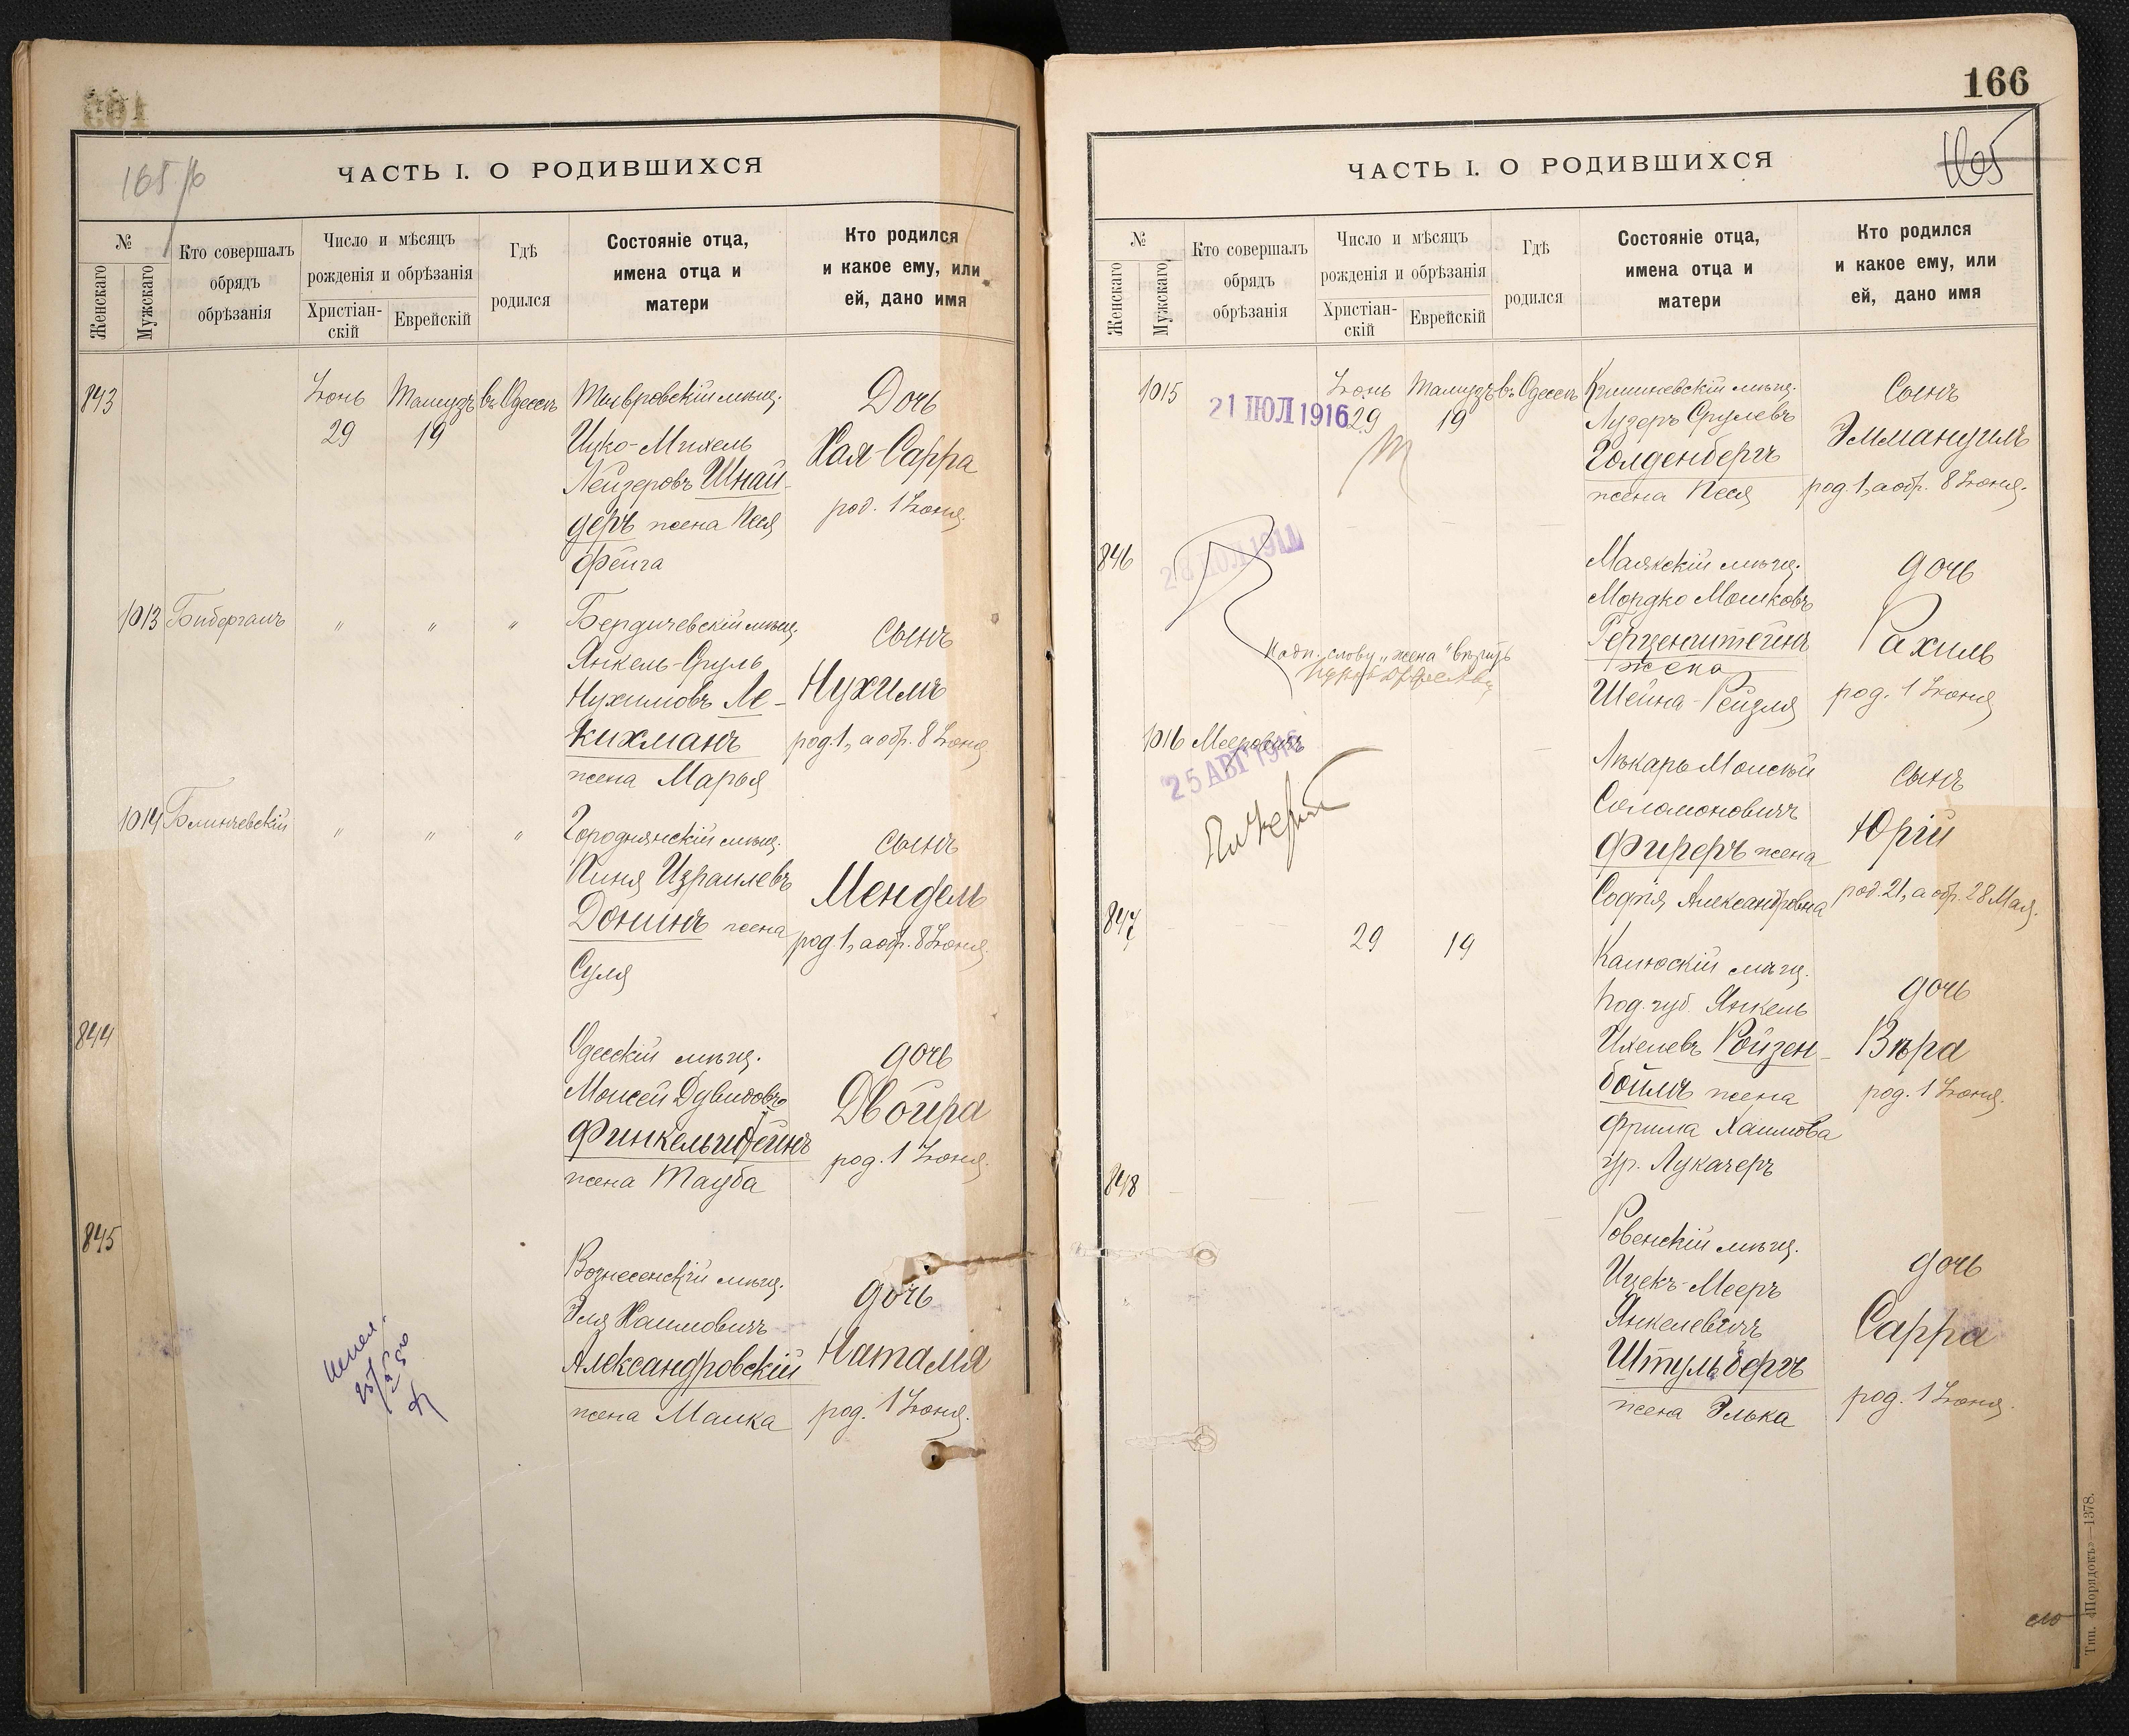 165 b
ЧАСТЬ I. О РОДИВШИХСЯ
№
Женскаго
Мужскаго
Кто совершалъ
обрядъ
обрѣзанія
Число и мѣсяцъ
рожденія и обрѣзанія
Христіан-
скій
Еврейскій
Гдѣ
родился
Состояніе отца,
имена отца и
матери
Кто родился
и какое ему, или
ей, дано имя
843
Іюнь
29
Тамузъ
19
въ Одессѣ
Тывровскій мѣщ.
Ицко-Михель
Лейзеровъ Шнай-
деръ жена Песя
Фейга
Дочь
Хая-Сарра
род. 1 Іюня.
1013
Биберганъ
"
"
"
Бердичевскій мѣщ.
Янкель-Сруль
Нухимовъ Ле-
кихманъ
жена Марья
сынъ
Нухимъ
род. 1, а обр. 8 Іюня
1014
Блинчевскій
"
"
"
Городнянскій мѣщ.
Пиня Израилевъ
Донинъ жена
Суля
сынъ
Мендель
род 1, а обр. 8 Іюня.
844
Одесскій мѣщ.
Моисей Дувидовъ
Финкельштейнъ
жена Тауба
дочь
Двойра
род. 1 Іюня.
845
Вознесенскій мѣщ.
Эля Хаимовичъ
Александровскій
жена Малка
дочь
Наталія
род. 1 Іюня.
166
165
ЧАСТЬ I. О РОДИВШИХСЯ
№
Женскаго
Мужскаго
Кто совершалъ
обрядъ
обрѣзанія
Число и мѣсяцъ
рожденія и обрѣзанія
Христіан-
скій
Еврейскій
Гдѣ
родился
Состояніе отца,
имена отца и
матери
Кто родился
и какое ему, или
ей, дано имя
1015
21 ІЮЛ 1916
Іюнь
29
Тамузъ
19
въ Одессѣ
Кишиневскій мѣщ.
Лузеръ Срулевъ
Голденбергъ
жена Песя
Сынъ
Эммануилъ
род. 1, а обр. 8 Іюня.
846
28 ІЮЛ 1911
Надп. слову „жена" вѣрить
Маякскій мѣщ.
Мордко Мошковъ
Герценштейнъ
жена
Шейна-Рейзля
дочь
Рахиль
род. 1 Іюня
1016
Мееровичъ
25 АВГ 1916
Лѣкарь Моисей
Соломоновичъ
Фиреръ жена
Софія Александровна
сынъ
Юрій
род. 21, а обр. 28 Мая.
847
29
19
Калюскій мѣщ.
Под. губ. Янкель
Ихелевъ Ройзен-
боймъ жена
Фрима Хаимова
ур. Лукачеръ
дочь
Вѣра
род. 1 Іюня.
848
Ровенскій мѣщ.
Ицекъ-Мееръ
Янкелевичъ
Штульбергъ
жена Элька
дочь
Сарра
род. 1 Іюня.
Тип. «Порядокъ»—1378.